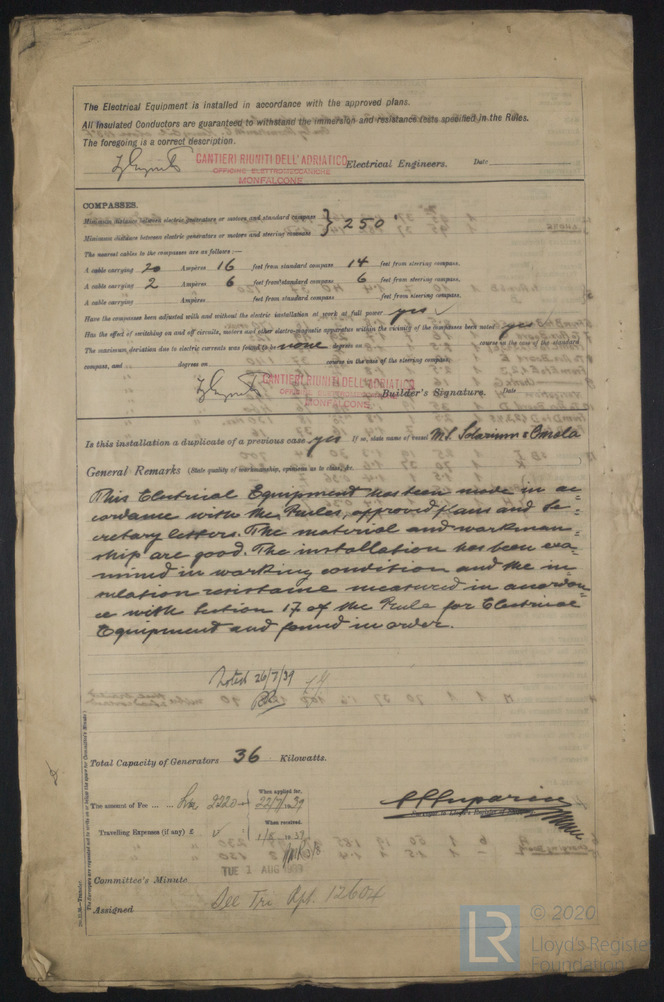 The Electrical Equipment is installed in accordance with the approved plans.
All Insulated Conductors are guaranteed to withstand the immersion and resistance tests specified in the Rules.
The foregoing is a correct description.
CANTIERI RIUNITI DELL'ADRIATICO
OFFICINE ELETTROMECCANICHE
MONFALCONE
Electrical Engineers. Date
COMPASSES.
Minimum distance between electric generators or motors and standard compass
250"
Minimum distance between electric generators or motors and steering compass
The nearest cables to the compasses are as follows:—
A cable carrying 20 Ampères 16 feet from standard compass 14 feet from steering compass.
A cable carrying 2 Ampères 6 feet from standard compass 6 feet from steering compass.
A cable carrying Ampères feet from standard compass feet from steering compass.
Have the compasses been adjusted with and without the electric installation at work at full power yes
Has the effect of switching on and off circuits, motors and other electro-magnetic apparatus within the vicinity of the compasses been noted yes
The maximum deviation due to electric currents was found to be none degrees on course in the case of the standard
compass, and degrees on course in the case of the steering compass.
CANTIERI RIUNITI DELL'ADRIATICO
OFFICINE ELETTROMECCANICHE
MONFALCONE
Builder's Signature. Date
Is this installation a duplicate of a previous case yes If so, state name of vessel M.S.
General Remarks (State quality of workmanship, opinions as to class, &c.
This Electrical Equipment has been made in ac=
cordance with the Rules, approved plans and Se=
cretary letters. The material and workman=
ship are good. The installation has been exa=
mined in working condition and the in=
sulation resistance measured in accordan=
ce with Section 17 of the Rule for Electrical
Equipment and found in order.
Noted 26/7/39
Total Capacity of Generators 36 Kilowatts.
The amount of Fee ... ... Lire 2220 When applied for, 22/7/1939
When received.
Travelling Expenses (if any) £ 1/8 1939
Surveyor to Lloyd's Register of Shipping.
TUE 1 AUG 1939
Committee's Minute
See Tri Rpt. 12604
Assigned
© 2020
LR
Lloyd's Register
Foundation